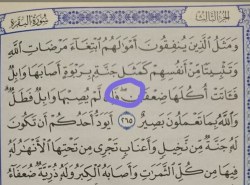 سُورَةُ البَقَرَةِ
الجزء الثالث
وَمَثَلُ ٱلَّذِينَ يُنفِقُونَ أَمْوَٰلَهُمُ ٱبْتِغَآءَ مَرْضَاتِ ٱللَّهِ
وَتَثْبِيتًا مِّنْ أَنفُسِهِمْ كَمَثَلِ جَنَّةٍۭ بِرَبْوَةٍ أَصَابَهَا وَابِلٌ
فَـَٔاتَتْ أُكُلَهَا ضِعْفَيْنِ لَّمْ يُصِبْهَا وَابِلٌ فَطَلٌّ
وَٱللَّهُ بِمَا تَعْمَلُونَ بَصِيرٌ ٢٦٥ أَيَوَدُّ أَحَدُكُمْ أَن تَكُونَ
لَهُۥ جَنَّةٌ مِّن نَّخِيلٍ وَأَعْنَابٍ تَجْرِى مِن تَحْتِهَا ٱلْأَنْهَٰرُ لَهُۥ
فِيهَا مِن كُلِّ ٱلثَّمَرَٰتِ وَأَصَابَهُ ٱلْكِبَرُ وَلَهُۥ ذُرِّيَّةٌ ضُعَفَآءُ